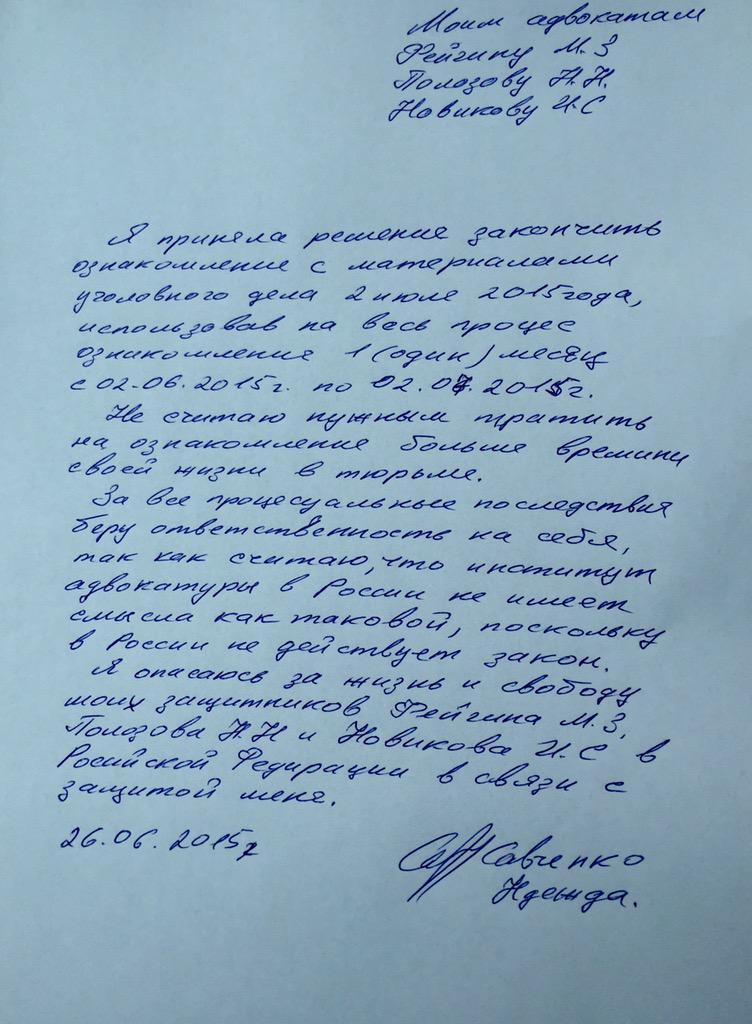 Моим адвокатам
Фейгину М.З
Полозову Н.Н.
Новикову И.С
Я приняла решение закончить
ознакомление с материалами
уголовного дела 2 июле 2015 года,
использовав на весь процес
ознакомление 1 (один) месяц
с 02.06.2015г. по 02.07.2015г.
Не считаю нужным тратить
на ознакомление больше времини
своей жизни в тюрьме.
За все процесуальные последствия
беру ответственность на себя,
так как считаю, что институт
адвокатуры в России не имеет
смысла как таковой, поскольку
в России не действует закон.
Я опасаюсь за жизнь и свободу
моих защитников Фейгина М.З,
Полозова Н.Н и Новикова И.С в
Росийской Федирации в связи с
защитой меня.
26.06.2015г
Савченко
Ндежда.